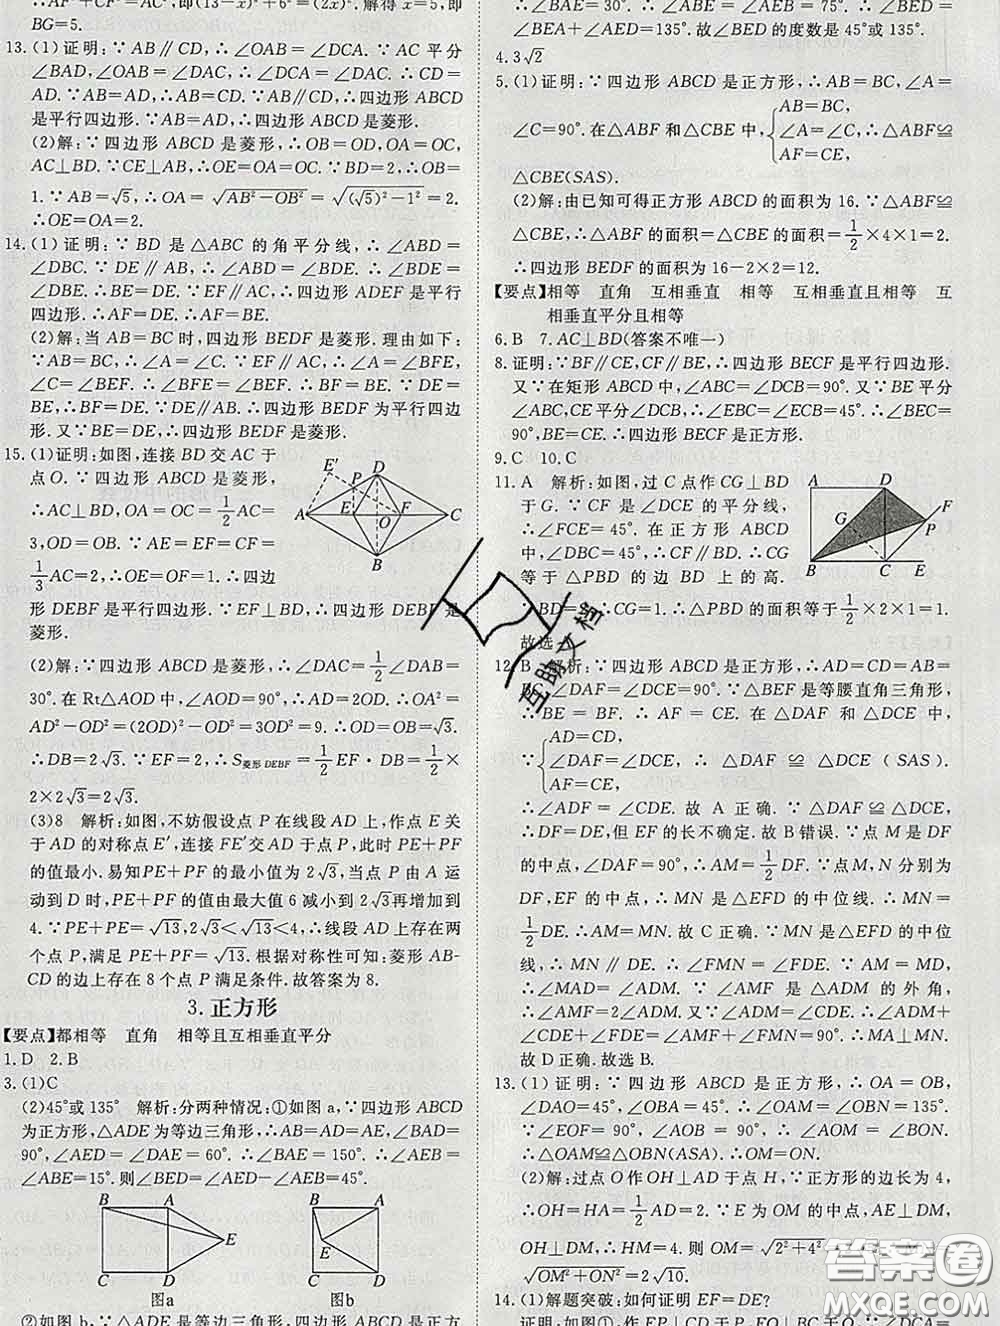 ∴AF²+CF²=AC²,即(13-x)²+6²=(2x)². 解得 x=5,即
BG=5.
13.(1)证明:∵AB∥CD,∴∠OAB=∠DCA.∵AC平分
∠BAD,∴∠OAB=∠DAC,∴∠DCA=∠DAC.∴CD=
AD.∵AB=AD,∴AB=CD.∵AB∥CD,∴四边形ABCD
是平行四边形.∵AB=AD,∴四边形ABCD是菱形.
(2)解:∵四边形ABCD是菱形,∴OB=OD,OA=OC,
AC⊥BD.∵CE⊥AB,∴OE=OA=OC.∵BD=2,∴OB=
1.∵AB=√5,∴OA=√(AB²-OB²)=√((√5)²-1²)=2.
∴OE=OA=2.
14.(1)证明:∵BD是△ABC的角平分线,∴∠ABD=
∠DBC.∵DE∥AB,∴∠ABD=∠BDE.∴∠BDE=
∠DBC.∴DE=BE.∵BE=AF,∴四边形ADEF是平行
四边形.∴AF=DE.∴AF=BE.
(2)解:当AB=BC时,四边形BEDF是菱形.理由如下:
∵BE=AF,AB=BC,∴BF=CE.∴∠BEF=∠BFE.∴∠C
=∠BEF.∴∠BFE=∠C.∴BF=CE.∵DE=
BE,∴BF=DE.∴四边形BEDF为平行四边
形.又∵BE=DE,∴四边形BEDF是菱形.
15.(1)证明:如图,连接BD交AC于
点O.∵四边形ABCD是菱形,
∴AC⊥BD,OA=OC=1/2AC=
3,OD=OB.∵AE=EF=CF=
1/3AC=2,∴OE=OF=1.∴四边
形DEBF是平行四边形.∵EF⊥BD,∴四边形DEBF是
菱形.
(2)解:∵四边形ABCD是菱形,∴∠DAC=1/2∠DAB=
30°.在Rt△AOD中,∠AOD=90°,∴AD=2OD.∴OA²=
AD²-OD²=(2OD)²-OD²=3OD²=9.∴OD=OB=√3.
∴DB=2√3.∵EF=2,∴S菱形DEBF=1/2EF·DB=1/2×
2×2√3=2√3.
(3)8 解析:如图,不妨假设点P在线段AD上,作点E关
于AD的对称点E′,连接FE′交AD于点P,此时PE+PF
的值最小.易知PE+PF的最小值为2√3,当点P由A运
动到D时,PE+PF的值由最大值6减小到2√3再增加到
4.∵PE+PF=√13,2√3<√13<4,∴线段AD上存在两
个点P,满足PE+PF=√13.根据对称性可知:菱形AB-
CD的边上存在8个点P满足条件.故答案为8.
E′ D P A E O F C B
3.正方形
【要点】都相等 直角 相等且互相垂直平分
1.D 2.B
3.(1)C
(2)45°或135° 解析:分两种情况:①如图a,∵四边形ABCD
为正方形,△ADE为等边三角形,∴AB=AD=AE,∠BAD=
90°,∠AED=∠DAE=60°.∴∠BAE=150°.∴∠AEB=
∠ABE=15°.则∠BED=∠AED-∠AEB=45°.
B A E C D 图a
B A E C D 图b
②如图b,∵△ADE是等边三角形,四边形ABCD是正方
∴∠BAE=30°.∴∠ABE=∠AEB=75°.∴∠BED=
∠BEA+∠AED=135°.故∠BED的度数是45°或135°.
4.3√2
5.(1)证明:∵四边形ABCD是正方形,∴AB=BC,∠A=
∠C=90°.在△ABF和△CBE中,{AB=BC, ∠A=∠C, AF=CE, ∴△ABF≌
△CBE(SAS).
(2)解:由已知可得正方形ABCD的面积为16.∵△ABF≌
△CBE,∴△ABF的面积=△CBE的面积=1/2×4×1=2.
∴四边形BEDF的面积为16-2×2=12.
【要点】相等 直角 互相垂直 相等 互相垂直且相等 互
相垂直平分且相等
6.B 7.AC⊥BD(答案不唯一)
8.证明:∵BF∥CE,CF∥BE,∴四边形BECF是平行四边形.
又∵在矩形ABCD中,∠ABC=∠DCB=90°.又∵BE平分
∠ABC,CE平分∠DCB,∴∠EBC=∠ECB=45°.∴∠BEC=
90°,BE=CE.∴四边形BECF是正方形.
9.C 10.C
11.A 解析:如图,过C点作CG⊥BD
于G.∵CF是∠DCE的平分线,
∴∠FCE=45°.在正方形ABCD
中,∠DBC=45°,∴CF∥BD.∴CG
等于△PBD的边BD上的高.
∵BD=2,∴CG=1.∴△PBD的面积等于1/2×2×1=1.
故选A.
A D F G P B C E
12.B 解析:∵四边形ABCD是正方形,∴AD=AB=
DC,∠DAF=∠DCE=90°.∵△BEF是等腰直角三角形,
∴BE=BF.∴AF=CE.在△DAF和△DCE中,
{AD=CD, ∠DAF=∠DCE, AF=CE, ∴△DAF≌△DCE(SAS).
∴∠ADF=∠CDE.故A正确.∵△DAF≌△DCE,
∴DF=DE,但EF的长不确定.故B错误.∵点M是DF
的中点,∠DAF=90°,∴AM=1/2DF.∵点M,N分别为
DF,EF的中点,∴MN是△EFD的中位线.∴MN=
1/2DE.∴AM=MN.故C正确.∵MN是△EFD的中位
线,∴MN∥DE.∴∠FMN=∠FDE.∵AM=MD,
∴∠MAD=∠ADM.∵∠AMF是△ADM的外角,
∴∠AMF=2∠ADM.又∵∠ADM=∠DEC,∴∠ADM+
∠CDE+∠FDE=∠AMF+∠FMN=∠AMN=90°.
故D正确.故选B.
13.(1)证明:∵四边形ABCD是正方形,∴OA=OB,
∠DAO=45°,∠OBA=45°.∴∠OAM=∠OBN=135°.
∵∠EOF=90°,∠AOB=90°,∴∠AOM=∠BON.
∴△OAM≌△OBN(ASA).∴OM=ON.
(2)解:过点O作OH⊥AD于点H,∵正方形的边长为4,
∴OH=HA=1/2AD=2.∵E为OM的中点,AE⊥DM,
OH⊥DM,∴HM=4.则OM=√(2²+4²)=2√5.∴MN=
√(OM²+ON²)=2√10.
14.(1)解题突破:如何证明EF=DE?
互助文档
答案圈
MXQE.COM